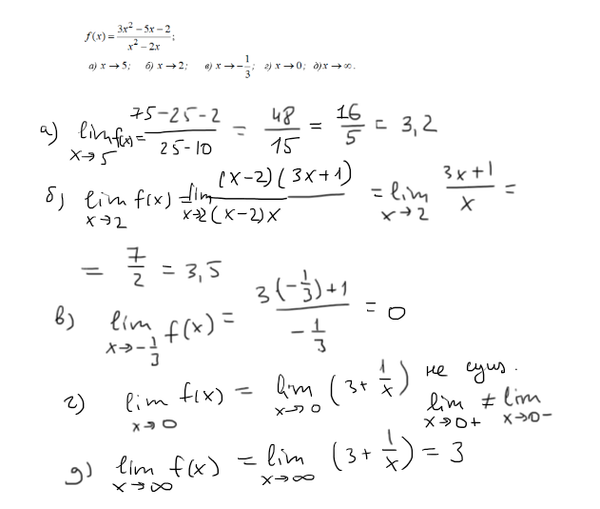 f(x) = (3x² − 5x − 2)/(x² − 2x);
а) x → 5; б) x → 2; в) x → −1/3; г) x → 0; д) x → ∞.
а) lim x→5 f(x) = (75-25-2)/(25-10) = 48/15 = 16/5 = 3,2
б) lim x→2 f(x) = lim x→2 (x-2)(3x+1)/(x-2)x = lim x→2 (3x+1)/x =
= 7/2 = 3,5
в) lim x→-1/3 f(x) = (3(-1/3)+1)/(-1/3) = 0
г) lim x→0 f(x) = lim x→0 (3+1/x) не сущ.
lim x→0+ ≠ lim x→0-
д) lim x→∞ f(x) = lim x→∞ (3+1/x) = 3